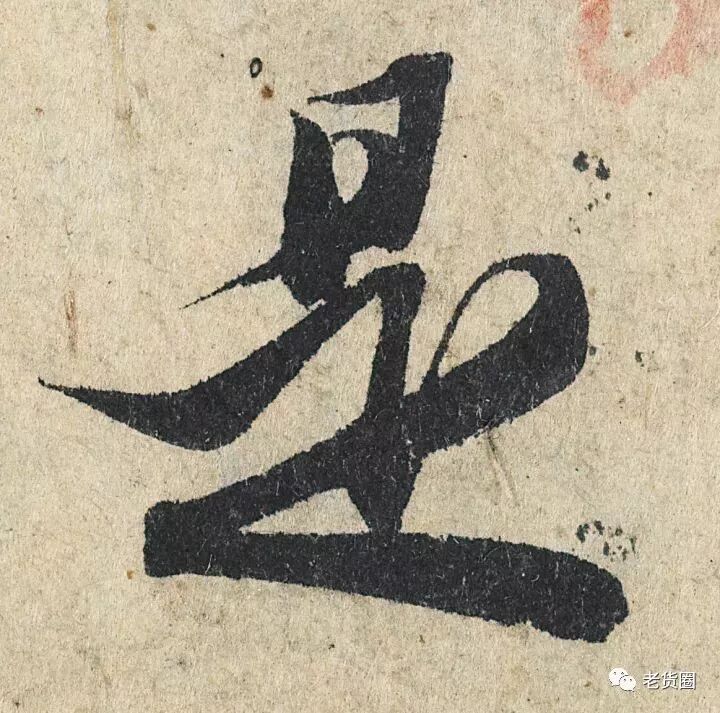 是
老货圈